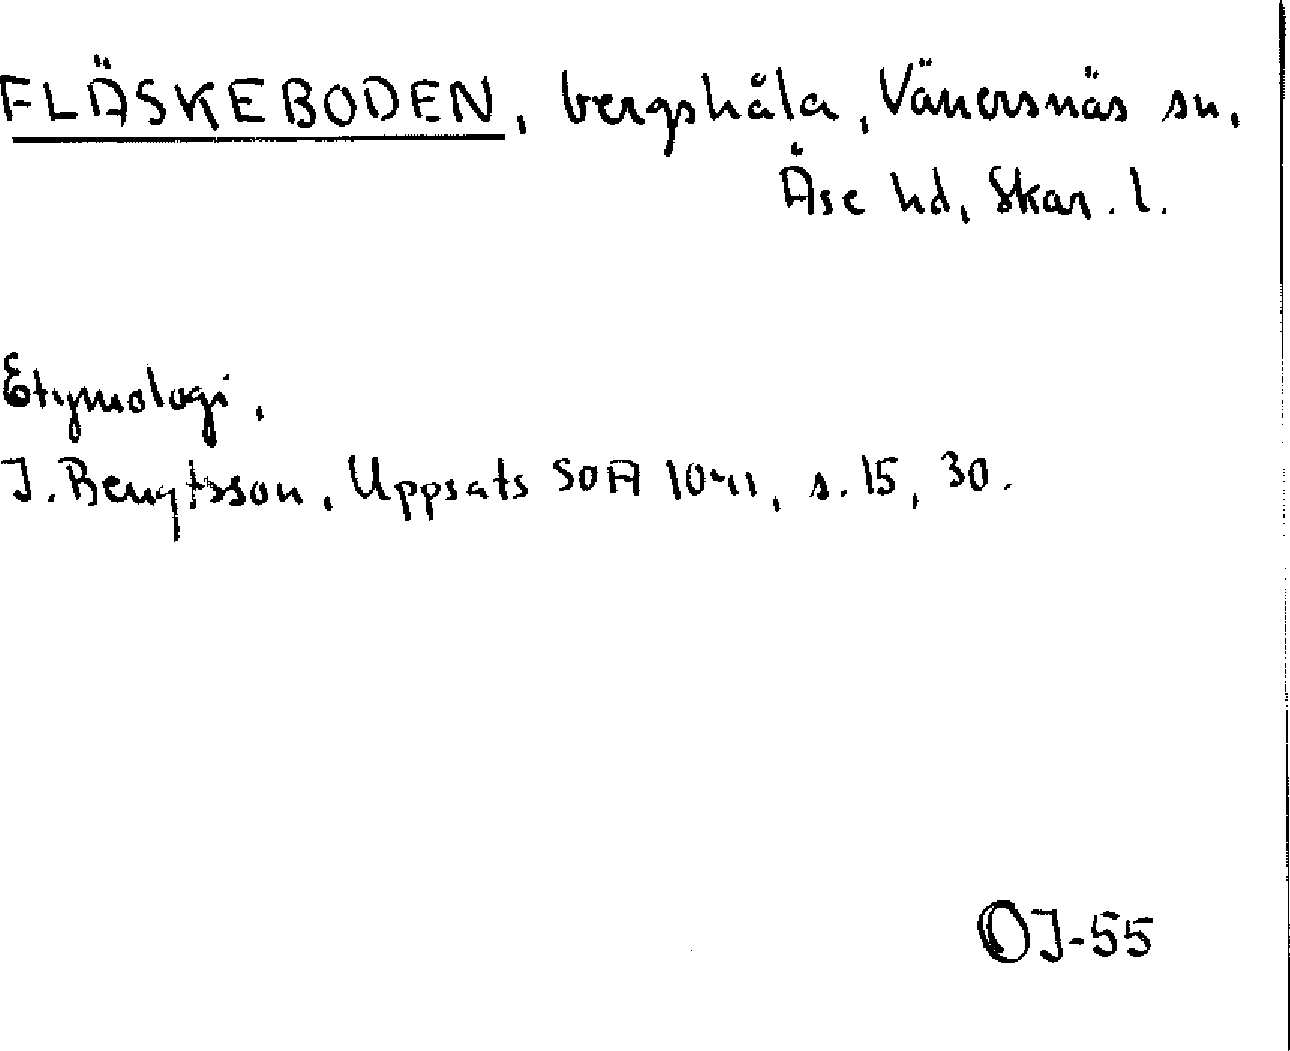 FLÄSKEBODEN, bergshåla, Vänersnäs sn,
Åse hd, Skar. l.
Etymologi,
J. Bengtsson, Uppsats SOA 1041, s. 15, 30.
OJ-55